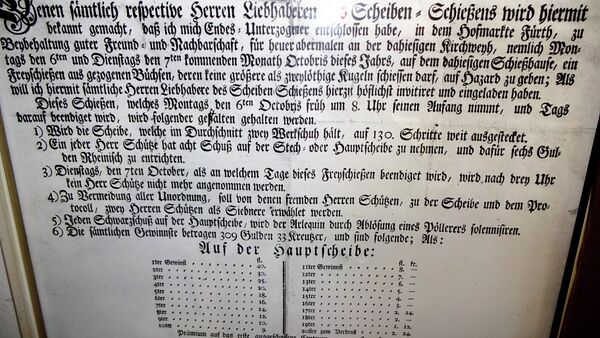 Denen sämtlich respective Herren Liebhaberen des Scheiben-Schießens wird hiermit
bekannt gemacht, daß ich mich Endes-Unterzogener entschlossen habe, in dem Hofmarkte Fürth, zu
Beybehaltung guter Freund- und Nachbarschaft, für heuer abermalen an der dahiesigen Kirchweyh, nemlich Mon-
tags den 6ten und Dienstags den 7ten kommenden Monath Octobris dieses Jahrs, auf dem dahiesigen Schießhause, ein
Freyschießen aus gezogenen Büchsen, deren keine größere als zweylöthige Kugeln schiessen darf, auf Hazard zu geben; Als
will ich hiermit sämtliche Herren Liebhabere des Scheiben Schießens hierzu höflichst invitiret und eingeladen haben.
Dieses Schießen, welches Montags den 6ten Octobris früh um 8. Uhr seinen Anfang nimmt, und Tags
darauf beendiget wird, wird folgender gestalten gehalten werden.
1) Wird die Scheibe, welche im Durchschnitt zwey Werkschuh hält, auf 130. Schritte weit ausgestecket.
2) Ein jeder Herr Schütz hat acht Schuß auf der Stech- oder Hauptscheibe zu nehmen, und dafür sechs Gul-
den Rheinisch zu entrichten.
3) Dienstags, den 7ten October, als an welchem Tage dieses Freyschießen beendiget wird, wird nach drey Uhr
kein Herr Schütze nicht mehr angenommen werden.
4) Zu Vermeidung aller Unordnung, soll von denen fremden Herren Schützen, zu der Scheibe und dem Pro-
tocoll, zwey Herren Schützen als Siebnere erwählet werden.
5) Jeden Schwarzschuß auf der Hauptscheibe, wird der Arlequin durch Ablösung eines Pöllerers solennisiren.
6) Die sämtlichen Gewinnste betragen 309 Gulden 33 Kreutzer, und sind folgende; Als:
Auf der Hauptscheibe:
fl. fl. kr.
1ter Gewinnst 40. 11ter Gewinnst 8. —
2ter 30. 12ter 7. —
3ter 25. 13ter 6. —
4ter 20. 14ter 5. —
5ter 18. 15ter 4. —
6ter 16. 16ter 3. —
7ter 14. 17ter 2. 24.
8ter 12. 18ter 2. —
9ter 10. 19ter 2. —
10ter 9. 20ster zum Verdruß 2. 24.
Prämium auf das erste